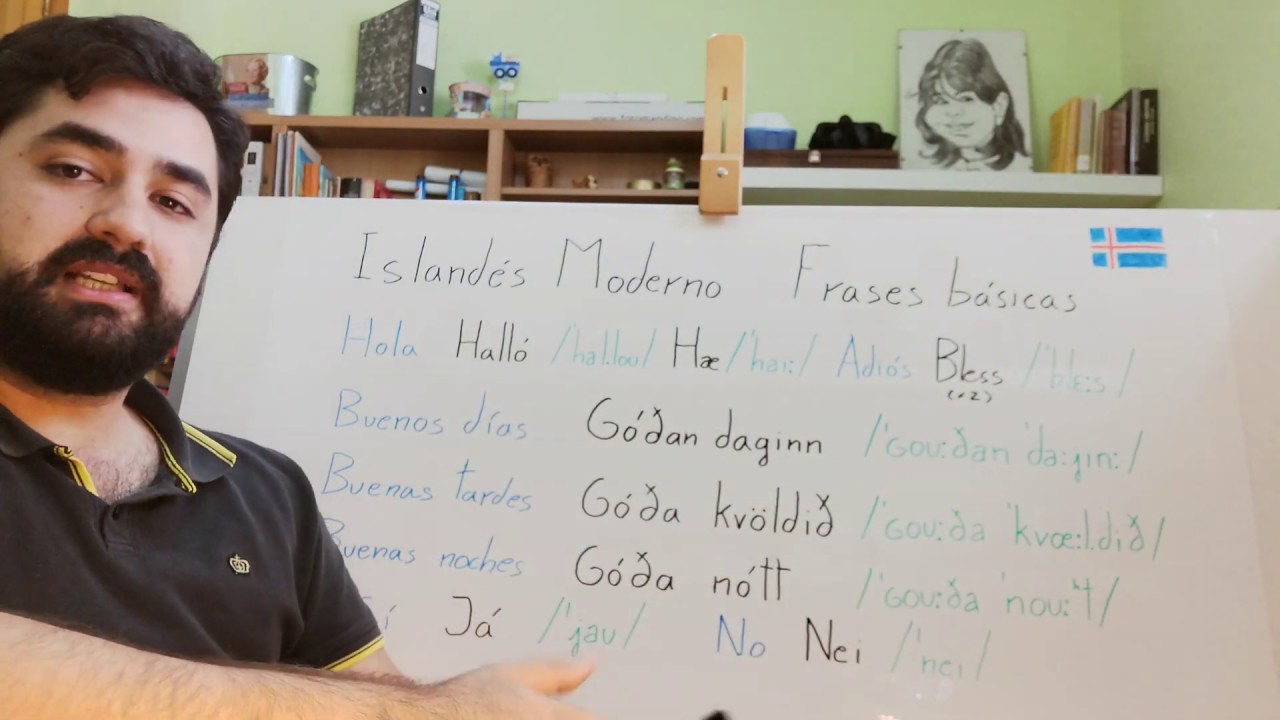 Islandés Moderno Frases básicas
Hola Halló /'hal:lou/ Hæ /'hai:/ Adiós Bless /'blɛ:s/
(x2)
Buenos días Góðan daginn /'Gou:ðan 'da:ȷin:/
Buenas tardes Góða kvöldið /'Gou:ða 'kvœ:l.dið/
Buenas noches Góða nótt /'Gou:ða 'nou:ʰt/
Já /'jau/ No Nei /'nei/